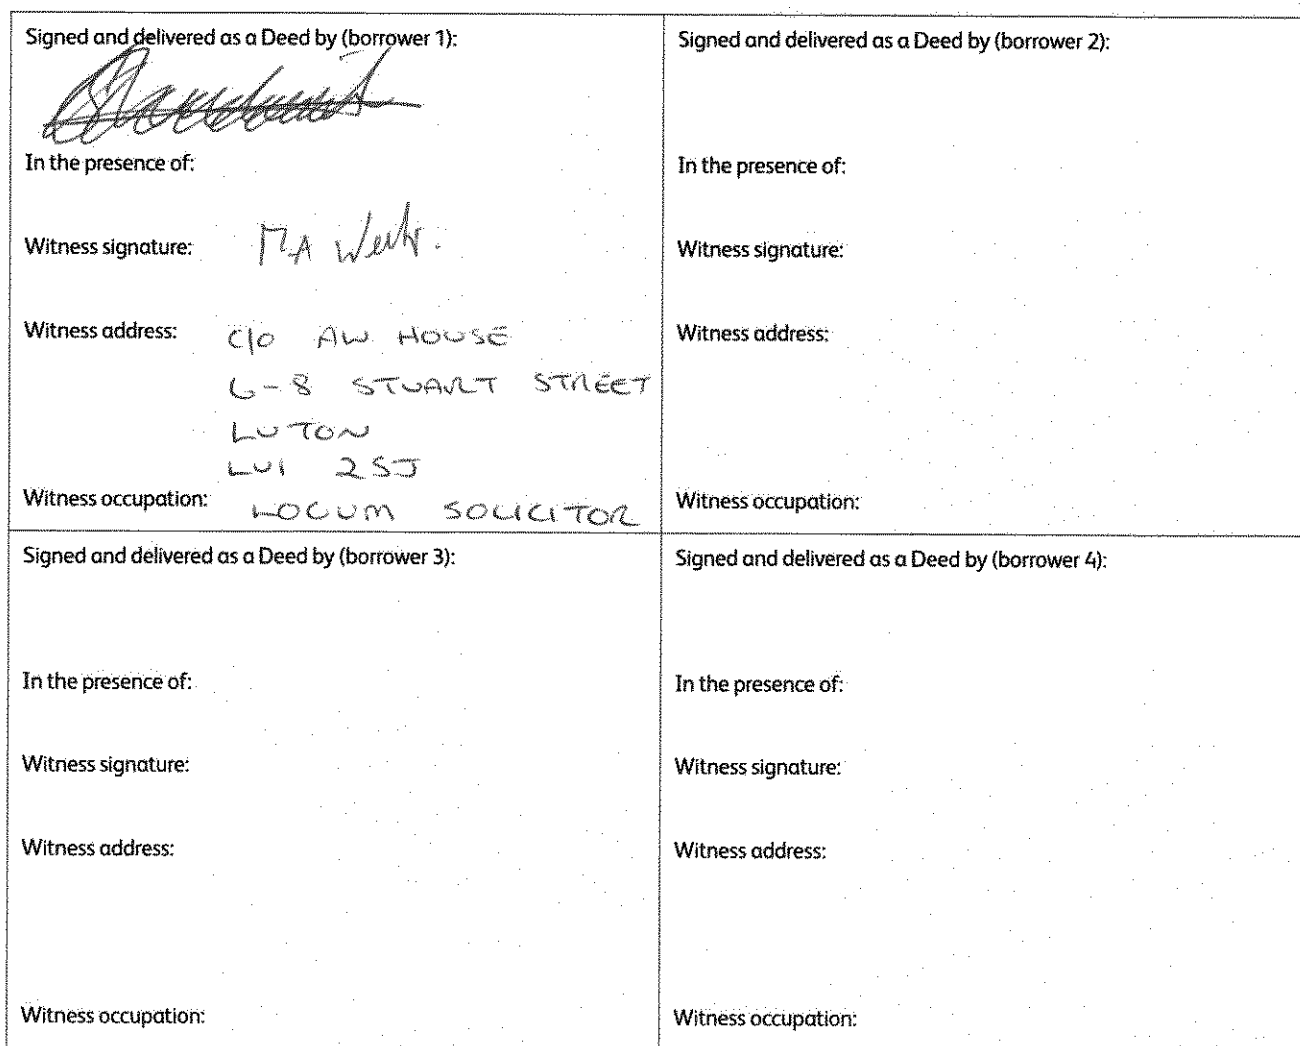 Signed and delivered as a Deed by (borrower 1):
In the presence of:
Witness signature: MA
Witness address: C/O AW HOUSE
6-8 STUART STREET
LUTON
LU1 2SJ
Witness occupation: LOCUM SOLICITOR
Signed and delivered as a Deed by (borrower 2):
In the presence of:
Witness signature:
Witness address:
Witness occupation:
Signed and delivered as a Deed by (borrower 3):
In the presence of:
Witness signature:
Witness address:
Witness occupation:
Signed and delivered as a Deed by (borrower 4):
In the presence of:
Witness signature:
Witness address:
Witness occupation: